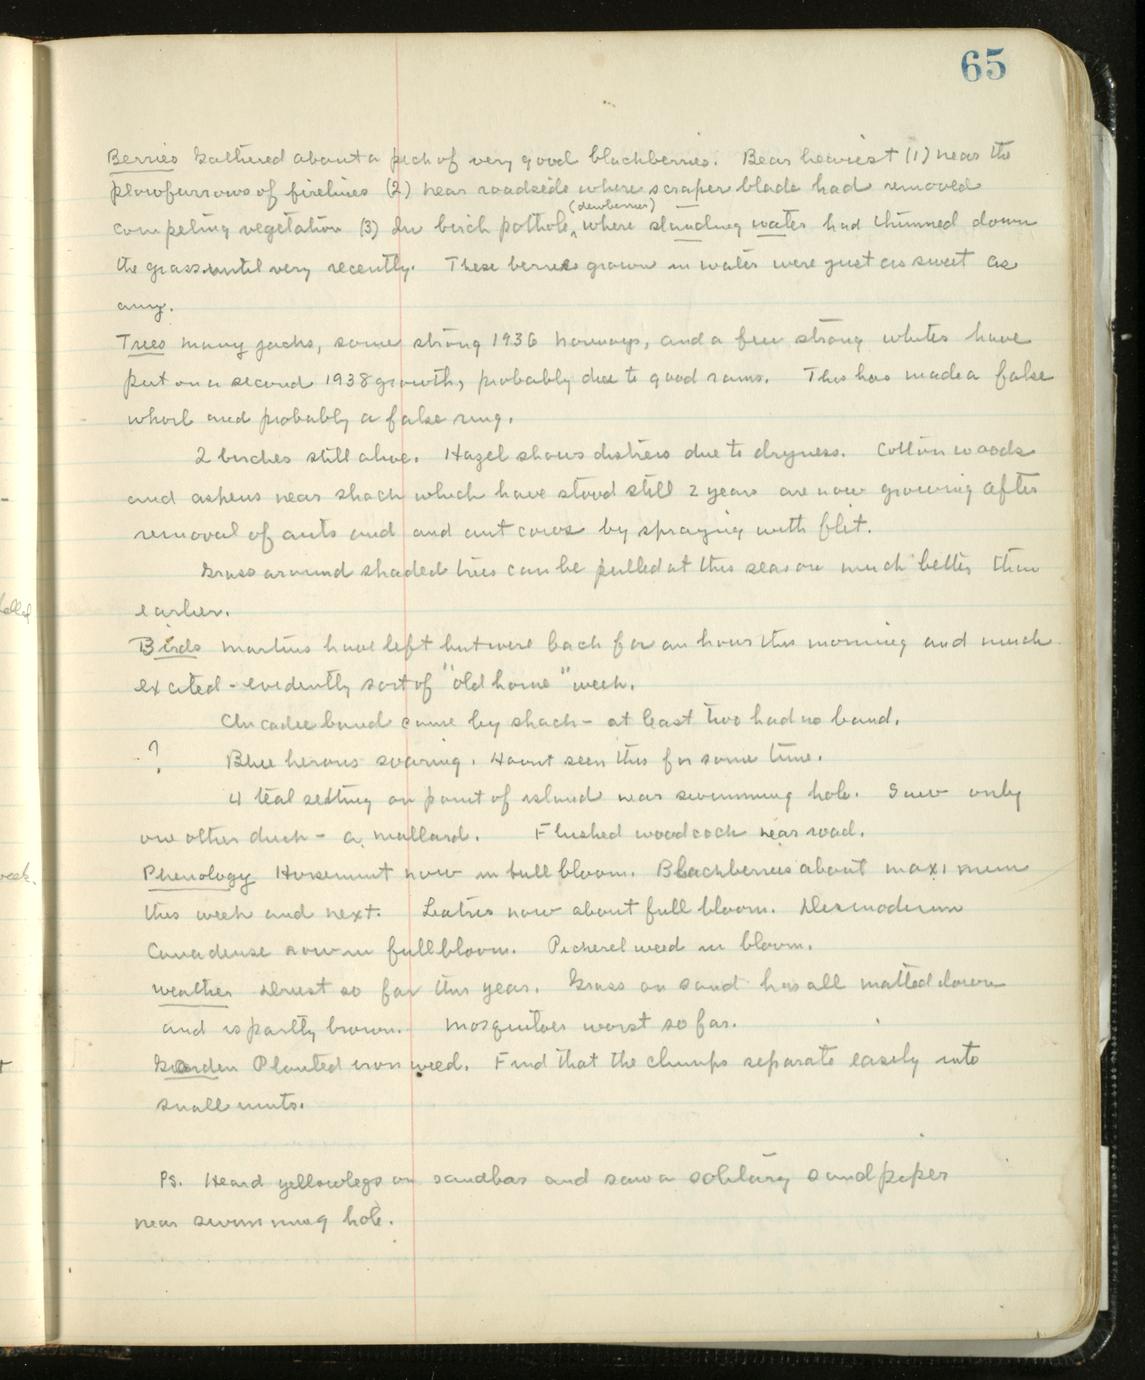 65
Berries Gathered about a peck of very good blackberries. Bear heaviest (1) near the
plowfurrows of firelines (2) near roadside where scraper blade had removed
(dewberries)
competing vegetation (3) In birch pothole ^ where standing water had thinned down
the grass until very recently. These berries grown in water were just as sweet as
any.
Trees many jacks, some strong 1936 norways, and a few strong whites have
put on a second 1938 growth, probably due to good rains. This has made a false
whorl and probably a false ring.
2 birches still alive. Hazel shows distress due to dryness. Cottonwoods
and aspens near shack which have stood still 2 years are now growing after
removal of ants and and ant cows by spraying with flit.
Grass around shaded trees can be pulled at this season much better than
earlier.
Birds martins have left but were back for an hour this morning and much
excited - evidently sort of "old home" week.
Chicadee band came by shack - at least two had no band.
? Blue herons soaring. Havnt seen this for some time.
4 teal setting on point of island near swimming hole. Saw only
one other duck - a mallard. Flushed woodcock near road.
Phenology Horsemint now in full bloom. Blackberries about maximum
this week and next. Liatris now about full bloom. Desmodium
Canadense now in full bloom. Pickerel weed in bloom.
Weather Driest so far this year. Grass on sand has all matted down
and is partly brown. Mosquitoes worst so far.
Garden Planted ironweed. Find that the clumps separate easily into
small units.
Ps. Heard yellowlegs on sandbar and saw a solitary sandpiper
near swimming hole.